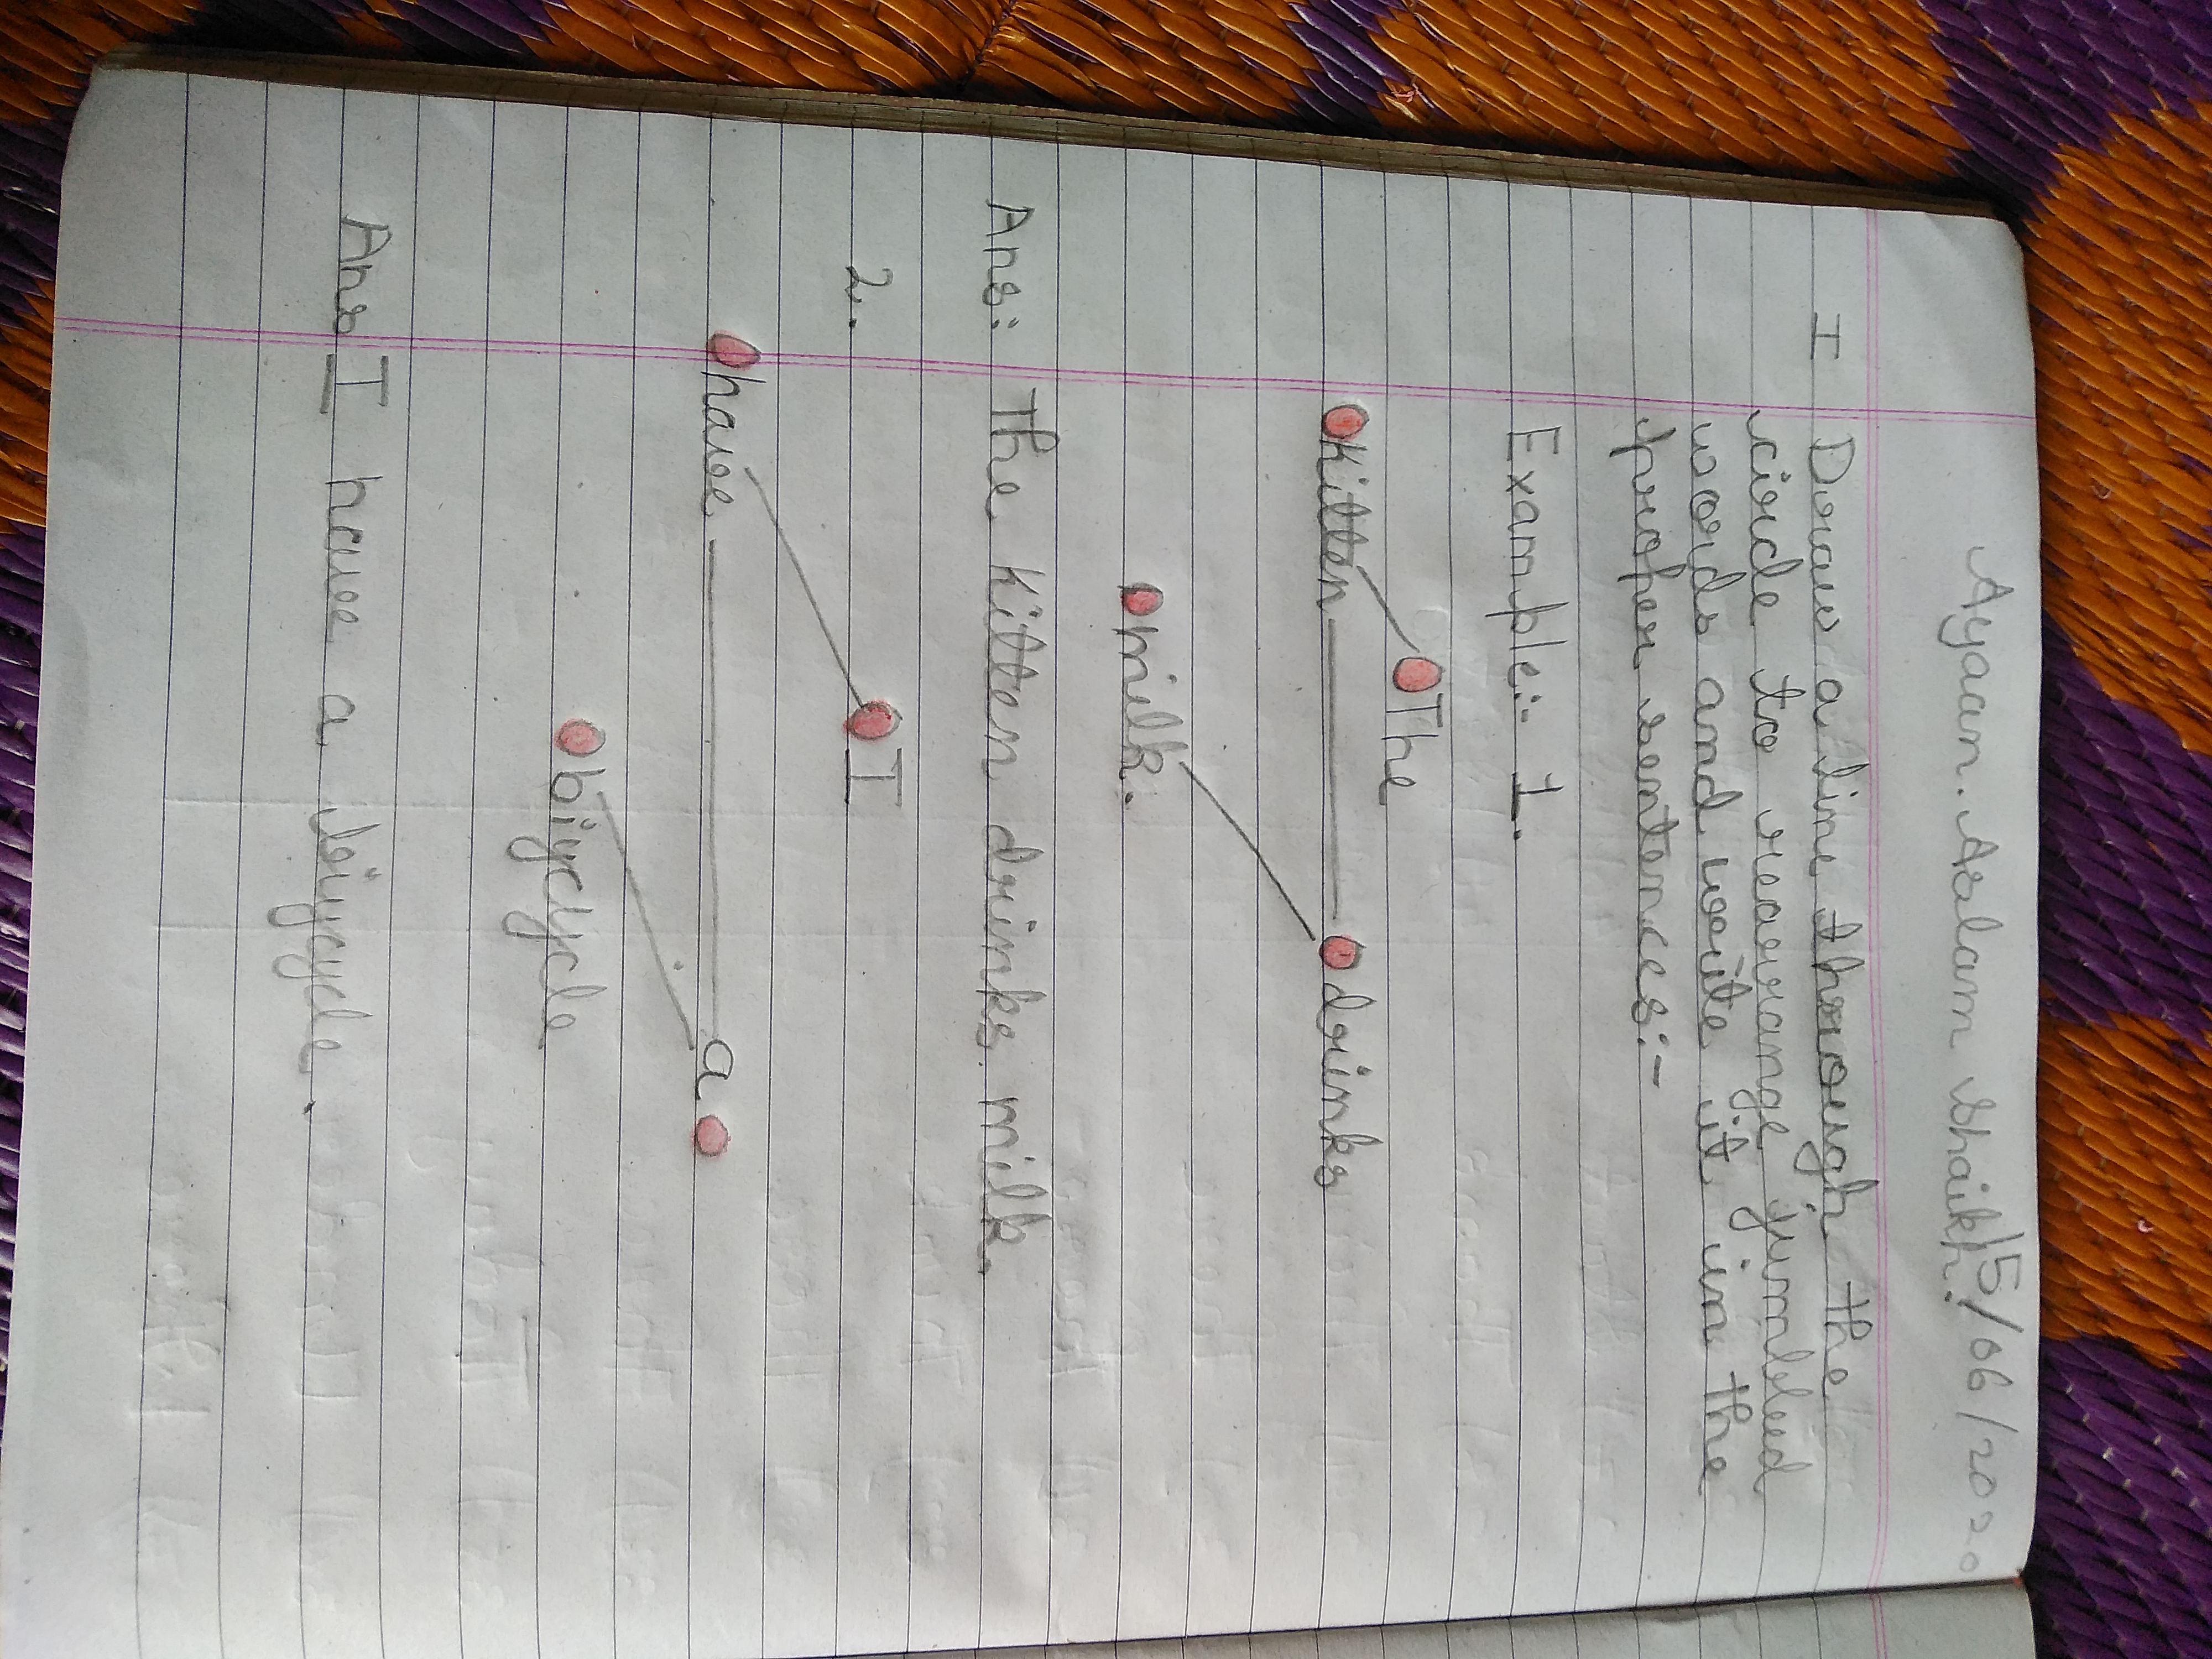 Ayaan. Aslam Shaikh.
15/06/2020
I Draw a line through the
circle to rearrange jumbled
words and write it in the
proper sentences:-
Example:- 1.
The
kitten drinks
milk.
Ans: The kitten drinks milk.
2.
I
have a
biycycle
Ans I have a biycycle.